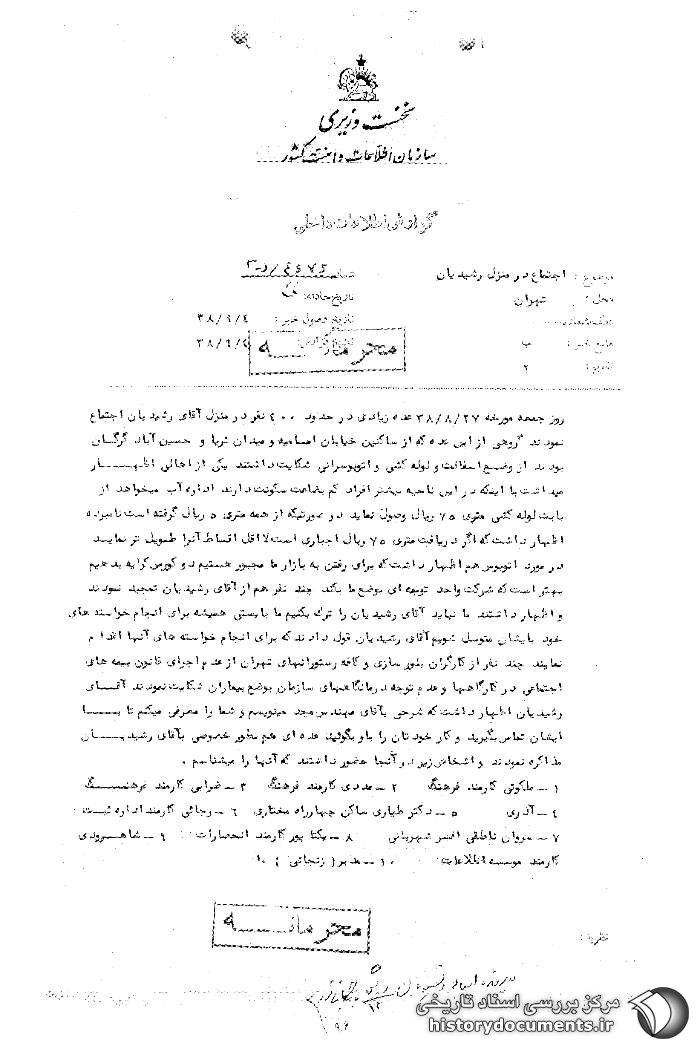 نخست وزیری
سازمان اطلاعات و امنیت کشور
گزارش اطلاعات داخلی
موضوع : اجتماع در منزل رشیدیان
شماره
محل : تهران
تاریخ حادثه:
تاریخ وصول خبر : ۳۸/۹/۴
منبع خبر : ب
تاریخ گزارش: ۳۸/۹/۴
تقویم : ۲
محرمانه
روز جمعه مورخه ۳۸/۸/۲۷ عده زیادی در حدود ۴۰۰ نفر در منزل آقای رشیدیان اجتماع
نمودند گروهی از این عده که از ساکنین خیابان امامیه و میدان ثریا و حسین آباد گرگان
بودند از وضع اسفالت و لوله کشی و اتوبوسرانی شکایت داشتند یکی از اهالی اظهار
میداشت با اینکه در این ناحیه بیشتر افراد کم بضاعت سکونت دارند اداره آب میخواهد از
بابت لوله کشی متری ۷۵ ریال وصول نماید در صورتیکه از همه متری ۵ ریال گرفته است نامبرده
اظهار داشت که اگر دریافت متری ۷۵ ریال اجباری است لااقل اقساط آنرا طویل تر نمایند
در مورد اتوبوس هم اظهار داشت که برای رفتن به بازار ما مجبور هستیم دو کورس کرایه بدهیم
بهتر است که شرکت واحد توجه ای بوضع ما بکند چند نفر هم از آقای رشیدیان تمجید نمودند
و اظهار داشتند ما نباید آقای رشیدیان را ترک بکنیم ما بایستی همیشه برای انجام خواسته های
خود بایشان متوسل شویم آقای رشیدیان قول دادند که برای انجام خواسته های آنها اقدام
نمایند چند نفر از کارگران بلور سازی و کافه رستورانهای تهران از عدم اجرای قانون بیمه های
اجتماعی در کارگاهها و عدم توجه درمانگاههای سازمان بوضع بیماران شکایت نمودند آقای
رشیدیان اظهار داشت که شرحی بآقای مهندس مجد مینویسم و شما را معرفی میکنم تا با
ایشان تماس بگیرید و کار خودتان را باو بگوئید عده ای هم بطور خصوصی بآقای رشیدیان
مذاکره نمودند و اشخاص زیر در آنجا حضور داشتند که آنها را میشناسم .
۱ – ملکوتی کارمند فرهنگ ۲ – مددی کارمند فرهنگ ۳ – ضرابی کارمند فرهنگ
۴ – آذری ۵ – دکتر طیاری ساکن چهارراه مختاری ۶ – رجائی کارمند اداره ثبت
۷ – سروان ناطقی افسر شهربانی ۸ – یکتا پور کارمند انحصارات ۹ – شاهرودی
کارمند موسسه اطلاعات ۱۰ – مدبر ( زنجانی )
محرمانه
نظریه :
مرکز بررسی اسناد تاریخی
historydocuments.ir